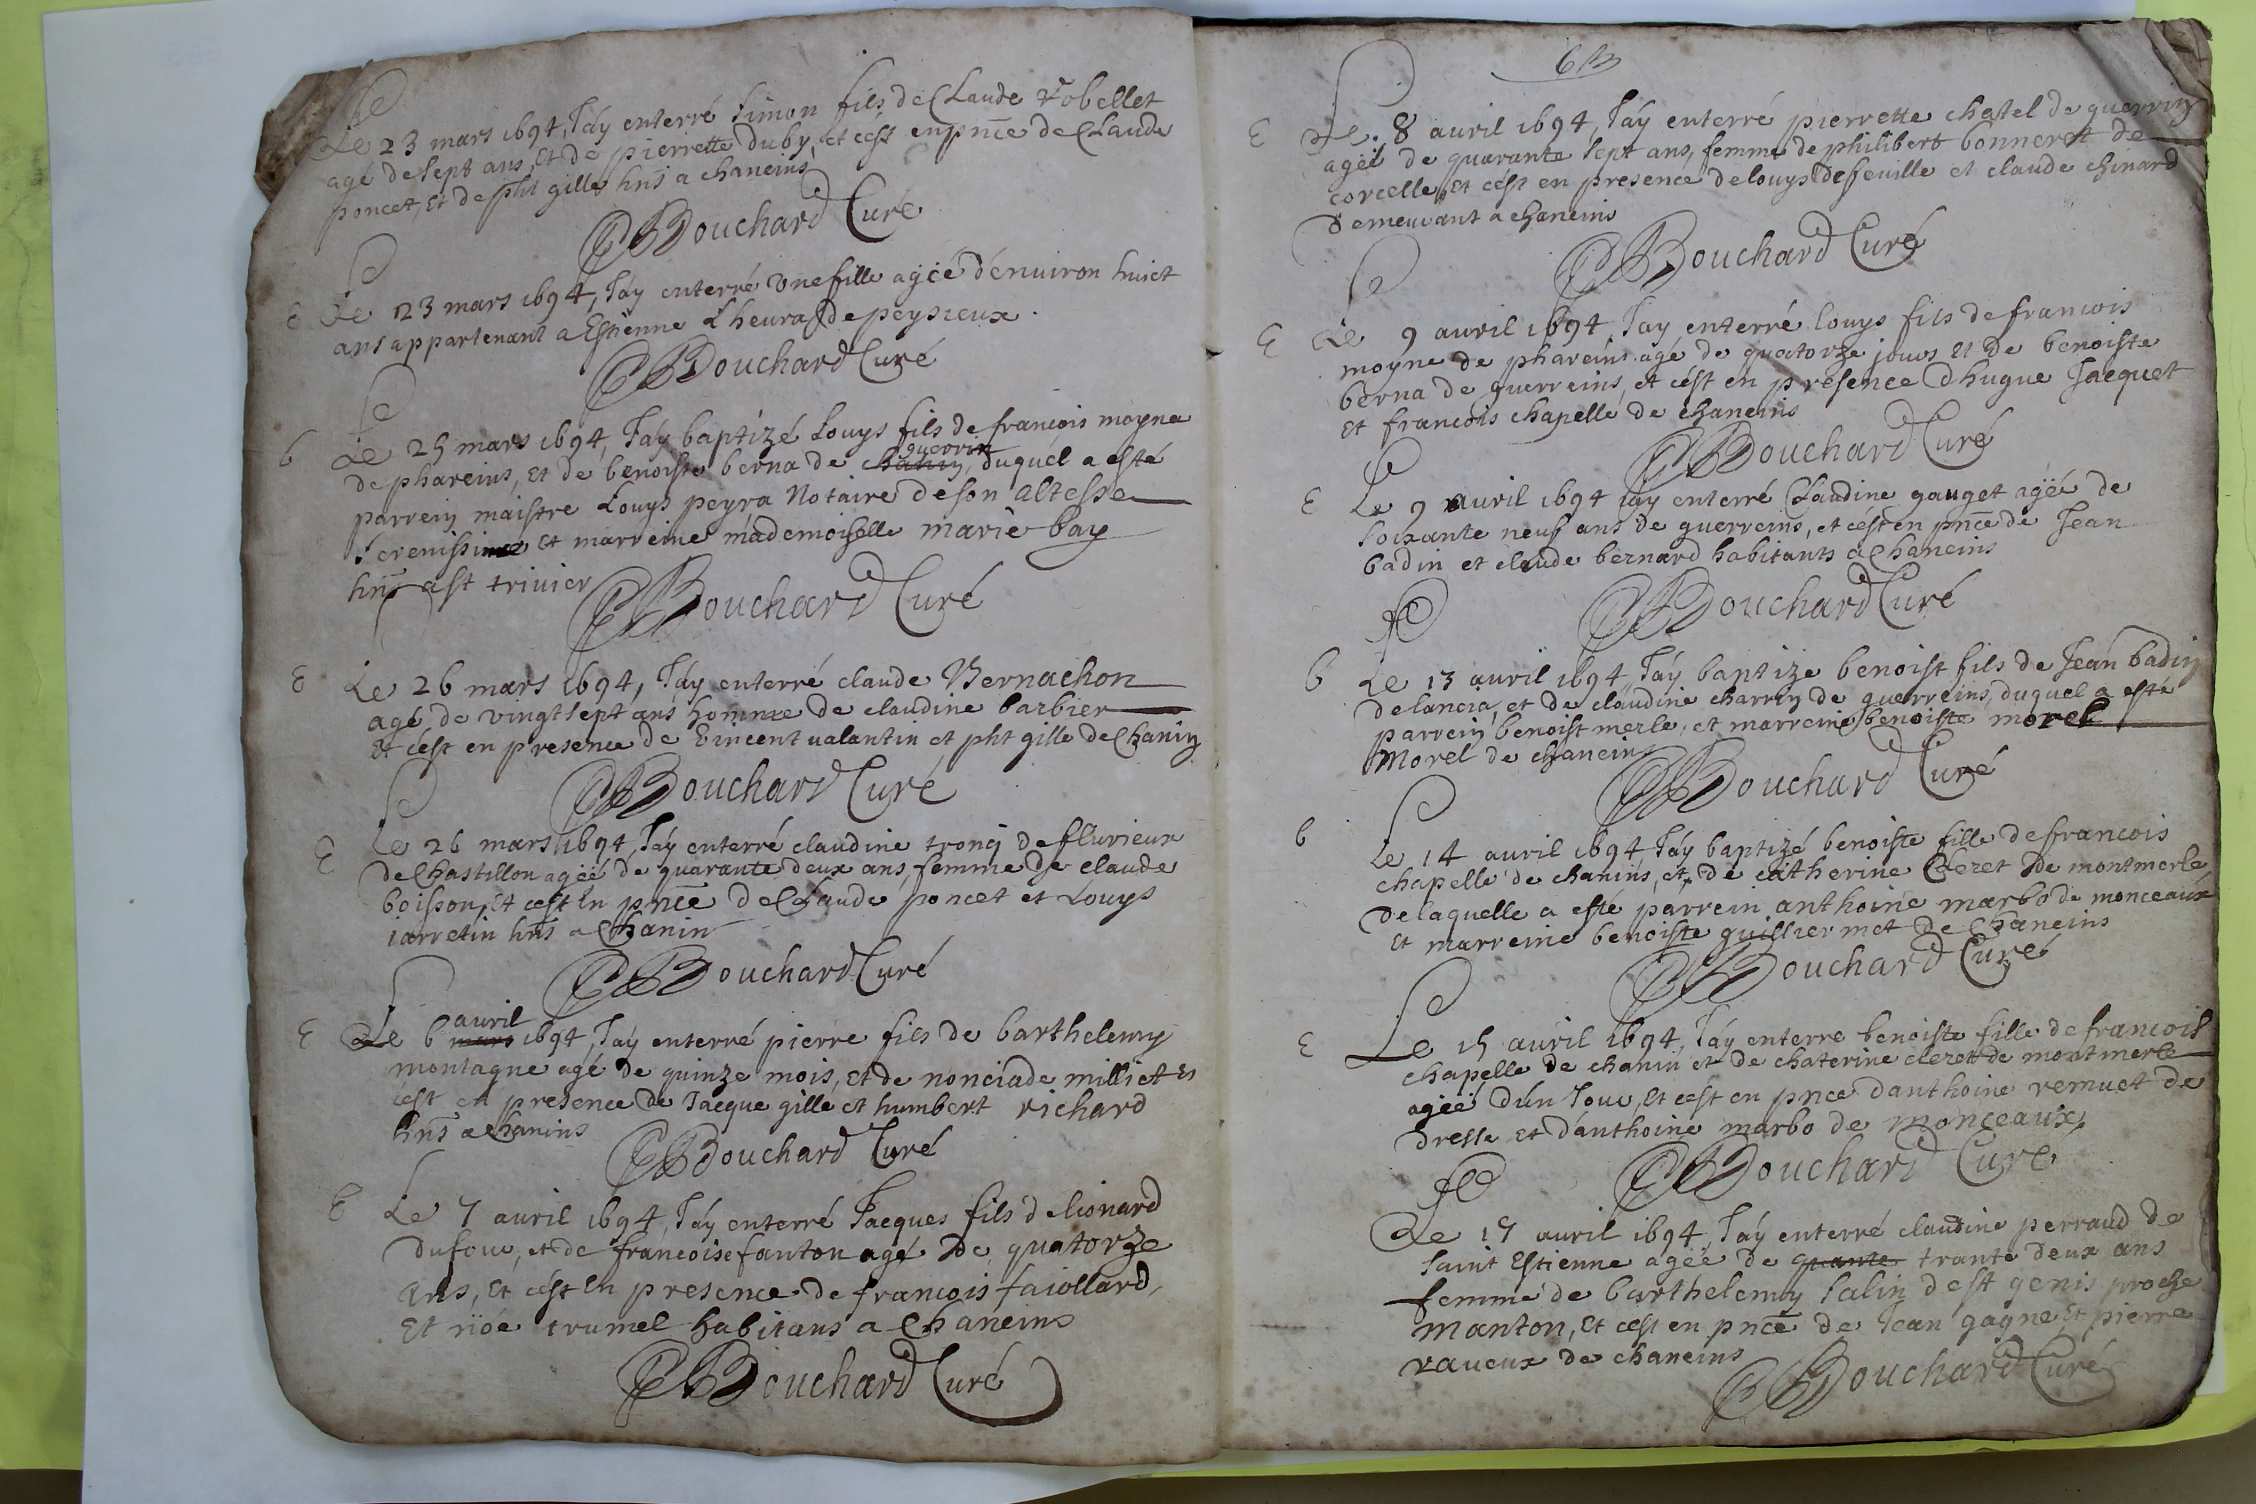 Le 23 mars 1694, J'ay enterré Simon fils de Claude robellet
agé de sept ans, Et de pierrette duby, et c'est en pnce de Claude
poncet, Et de pht gille hns a chaneins
Bouchard Curé
E Le 23 mars 1694, J'ay enterré une fille agée d'environ huict
ans appartenant a Estienne Lheura de peysieux.
Bouchard Curé
b Le 25 mars 1694, J'ay baptizé Louys fils de francois moyne
guerrin
de phareins, Et de benoiste berna de chanin, duquel a esté
parrein maistre Louys peyra Notaire de son Altesse
serenissime Et marreine mademoiselle marie bay
hns a st trivier
Bouchard Curé
E Le 26 mars 1694, J'ay enterré claude Bernachon
agé de vingt sept ans homme de claudine barbier
Et c'est en presence de Vincent valantin et pht gille de Chanin
Bouchard Curé
E Le 26 mars 1694, J'ay enterré claudine tronq de fflurieux
de Chastillon agéé de quarante deux ans, femme de claude
boisson, Et c'est En pnce de Claude poncet et Louys
jarretin hns a Chanin
Bouchard Curé
avril
E Le 6 mars 1694, J'ay enterré pierre fils de barthelemy
montagne agé de quinze mois, Et de nonciade milliet Et
c'est en presence de Jacque gille et humbert richard
hns a Chanins
Bouchard Curé
E Le 7 avril 1694, J'ay enterré Jacques fils de lionard
dufour, et de francoise fanton agé de quatorze
ans, Et c'est En presence de francois faiollard,
Et trumel habitans a Chaneins
Bouchard Curé
E Le 8 avril 1694, J'ay enterré pierrette chatel de guerrin
agéé de quarante sept ans, femme de philibert bonneret de
corcelle, Et c'est en presence de louys defeuille et claude chinard
demeurant a chaneins
Bouchard Curé
E Le 9 avril 1694, J'ay enterré louys fils de francois
moyne de phareins agé de quatorze jours Et de benoiste
berna de guerreins, et c'est en presence d'hugue Jacquet
Et francois chapelle de chaneins
Bouchard Curé
E Le 9 avril 1694 j'ay enterré Claudine gauget agéé de
soixante neuf ans de guerreins, et c'est en pnce de Jean
badin et claude bernard habitants a Chaneins
Bouchard Curé
b Le 13 avril 1694 J'ay baptize benoist fils de Jean badin
de lancia, et de claudine charrin de guerreins, duquel a esté
parrein benoist merle, et marreine benoiste morel
Morel de chanein
Bouchard Curé
b Le 14 avril 1694 J'ay baptizé benoiste fille de francois
chapelle de chanins, et de catherine Clezet de montmerle
de laquelle a esté parrein anthoine marbo de monceaux
Et marreine benoiste guilliermet de Chaneins
Bouchard Curé
E Le 15 avril 1694, J'ay enterré benoiste fille de francois
chapelle de chanin et de chaterine clezet de montmerle
agéé d'un Jour, Et c'est en pnce d'anthoine remuet de
dresse et d'anthoine marbo de monceaux,
Bouchard Curé
Le 17 avril 1694, J'ay enterré claudine perraud de
saint Estienne agéé de quante trante deux ans
femme de barthelemy salin de st genis proche
Manton, Et c'est en pnce de Jean gagne, Et pierre
raveux de chaneins
Bouchard Curé